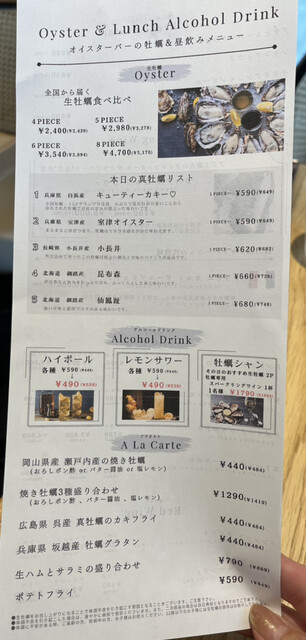 Oyster & Lunch Alcohol Drink
オイスターバーの牡蠣&昼飲みメニュー
生牡蠣
Oyster
全国から届く
生牡蠣食べ比べ
4 PIECE
¥2,400(¥2,420)
5 PIECE
¥2,980(¥3,278)
6 PIECE
¥3,540(¥3,894)
8 PIECE
¥4,700(¥5,170)
本日の真牡蠣リスト
1 兵庫県 白浜産 キューティーカキー♡ 1 PIECE ¥590(¥649)
2 兵庫県 室津産 室津オイスター 1 PIECE ¥590(¥649)
3 長崎県 小長井産 小長井 1 PIECE ¥620(¥682)
4 北海道 釧路産 昆布森 1 PIECE ¥660(¥726)
5 北海道 釧路産 仙鳳趾 1 PIECE ¥680(¥748)
アルコールドリンク
Alcohol Drink
ハイボール
各種 ¥590
↓
¥490
レモンサワー
各種 ¥590
↓
¥490
牡蠣シャン
その日のおすすめ生牡蠣 2P
スパークリングワイン 1杯
1名様 ¥1790
アラカルト
A La Carte
岡山県産 瀬戸内産の焼き牡蠣 ¥440(¥484)
(おろしポン酢 or バター醤油 or 塩レモン)
焼き牡蠣3種盛り合わせ ¥1290(¥1419)
(おろしポン酢、バター醤油、塩レモン)
広島県 呉産 真牡蠣のカキフライ ¥440(¥484)
兵庫県 坂越産 牡蠣グラタン ¥440(¥484)
生ハムとサラミの盛り合わせ ¥790
ポテトフライ ¥590